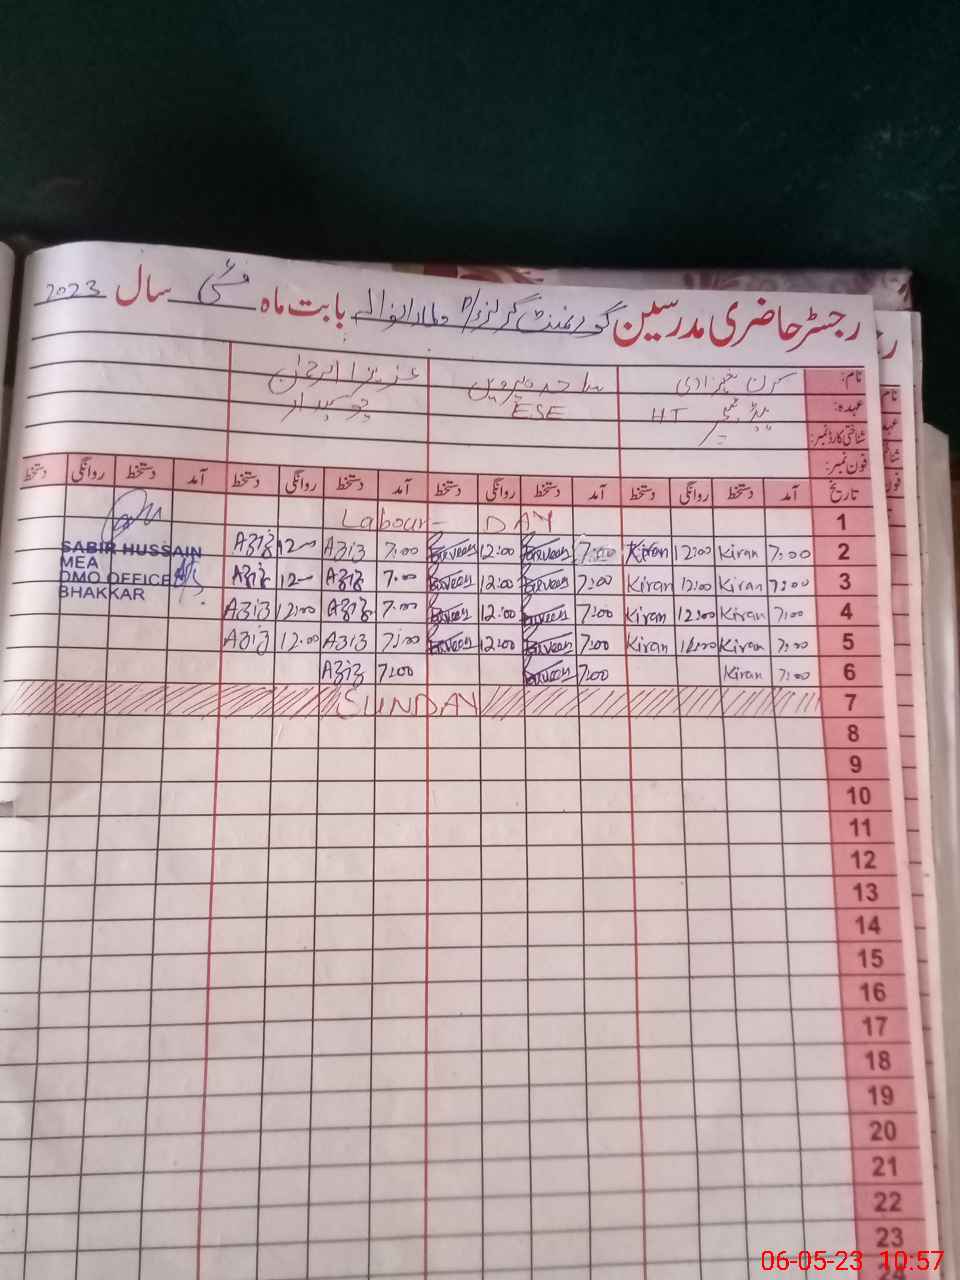 رجسٹر حاضری مدرسین گورنمنٹ گرلز بابت ماہ مئی سال 2023
نام: کرن عزیز الرحمٰن
عہدہ: ہیڈ ٹیچر HT ESE چوکیدار
شناختی کارڈ نمبر:
فون نمبر:
تاریخ آمد دستخط روانگی دستخط آمد دستخط روانگی دستخط آمد دستخط روانگی دستخط آمد دستخط روانگی دستخط
Labour DAY 1
Aziz 12:00 Aziz 7:00 Parveen 12:00 Parveen 7:00 Kiran 12:00 Kiran 7:00 2
Aziz 12:00 Aziz 7:00 Parveen 12:00 Parveen 7:00 Kiran 12:00 Kiran 7:00 3
Aziz 12:00 Aziz 7:00 Parveen 12:00 Parveen 7:00 Kiran 12:00 Kiran 7:00 4
Aziz 12:00 Aziz 7:00 Parveen 12:00 Parveen 7:00 Kiran 12:00 Kiran 7:00 5
Aziz 7:00 Parveen 7:00 Kiran 7:00 6
SUNDAY 7
8
9
10
11
12
13
14
15
16
17
18
19
20
21
22
23
SABIR HUSSAIN
MEA
DMO OFFICE
BHAKKAR
06-05-23 10:57